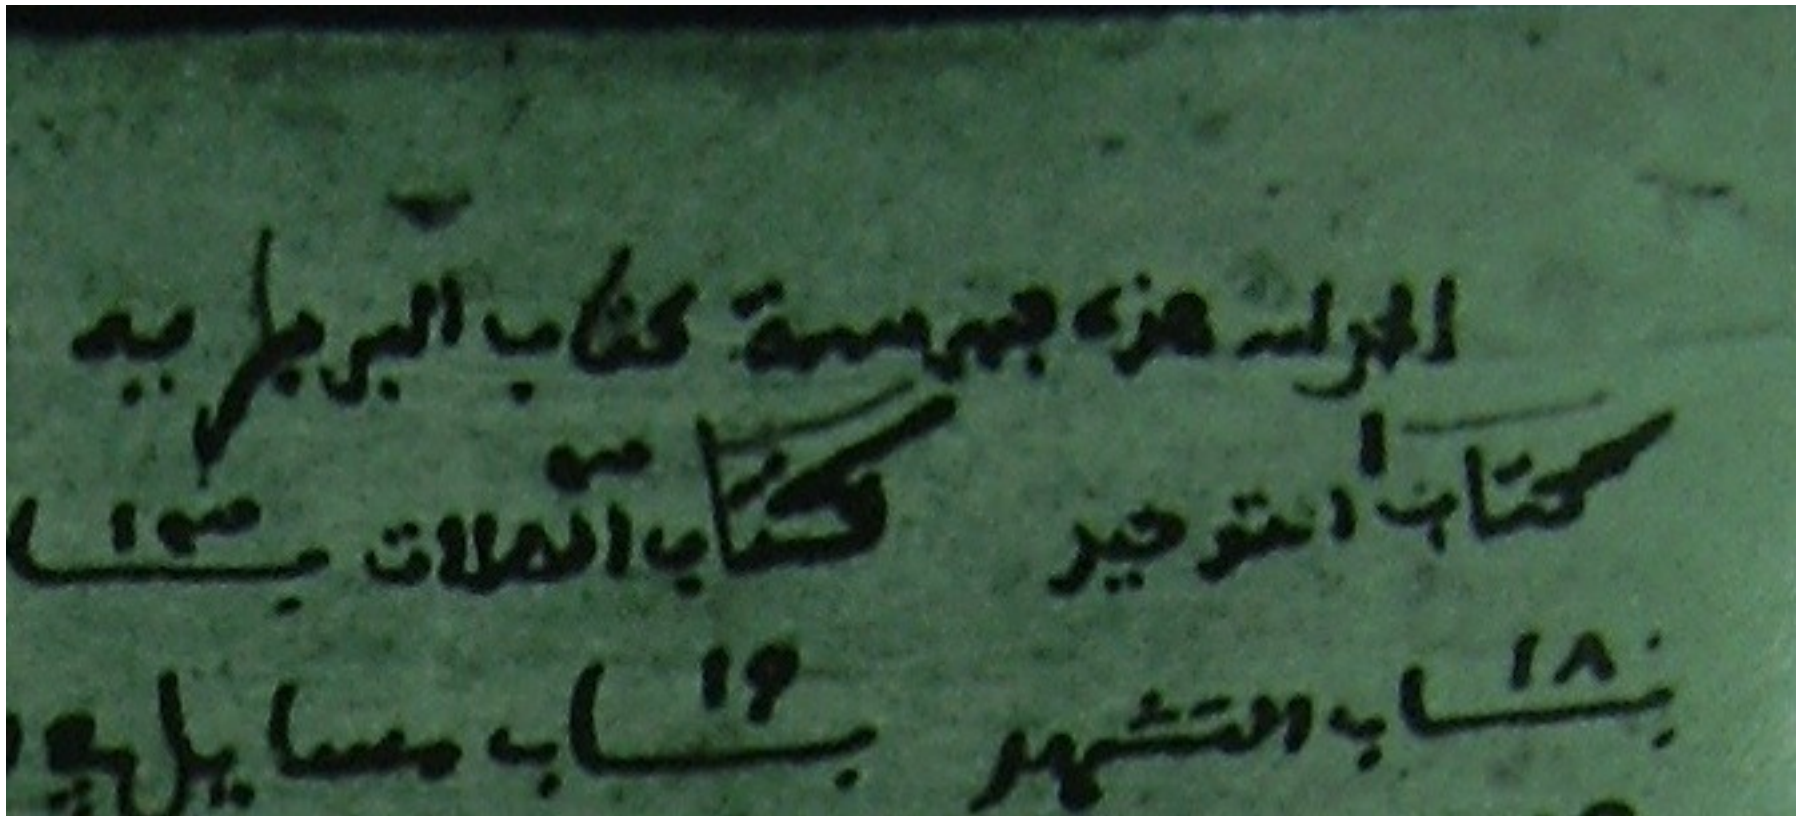 الحمد لله هذه فهرسة كتاب البر
كتاب التوحيد ١ كتاب الصلاة ٣ باب ١٣
باب ١٨ التشهد باب ١٩ مسايل